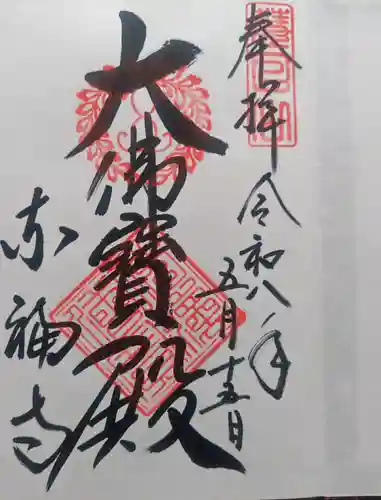 奉拝
令和八年
五月十五日
大佛寶殿
東福寺